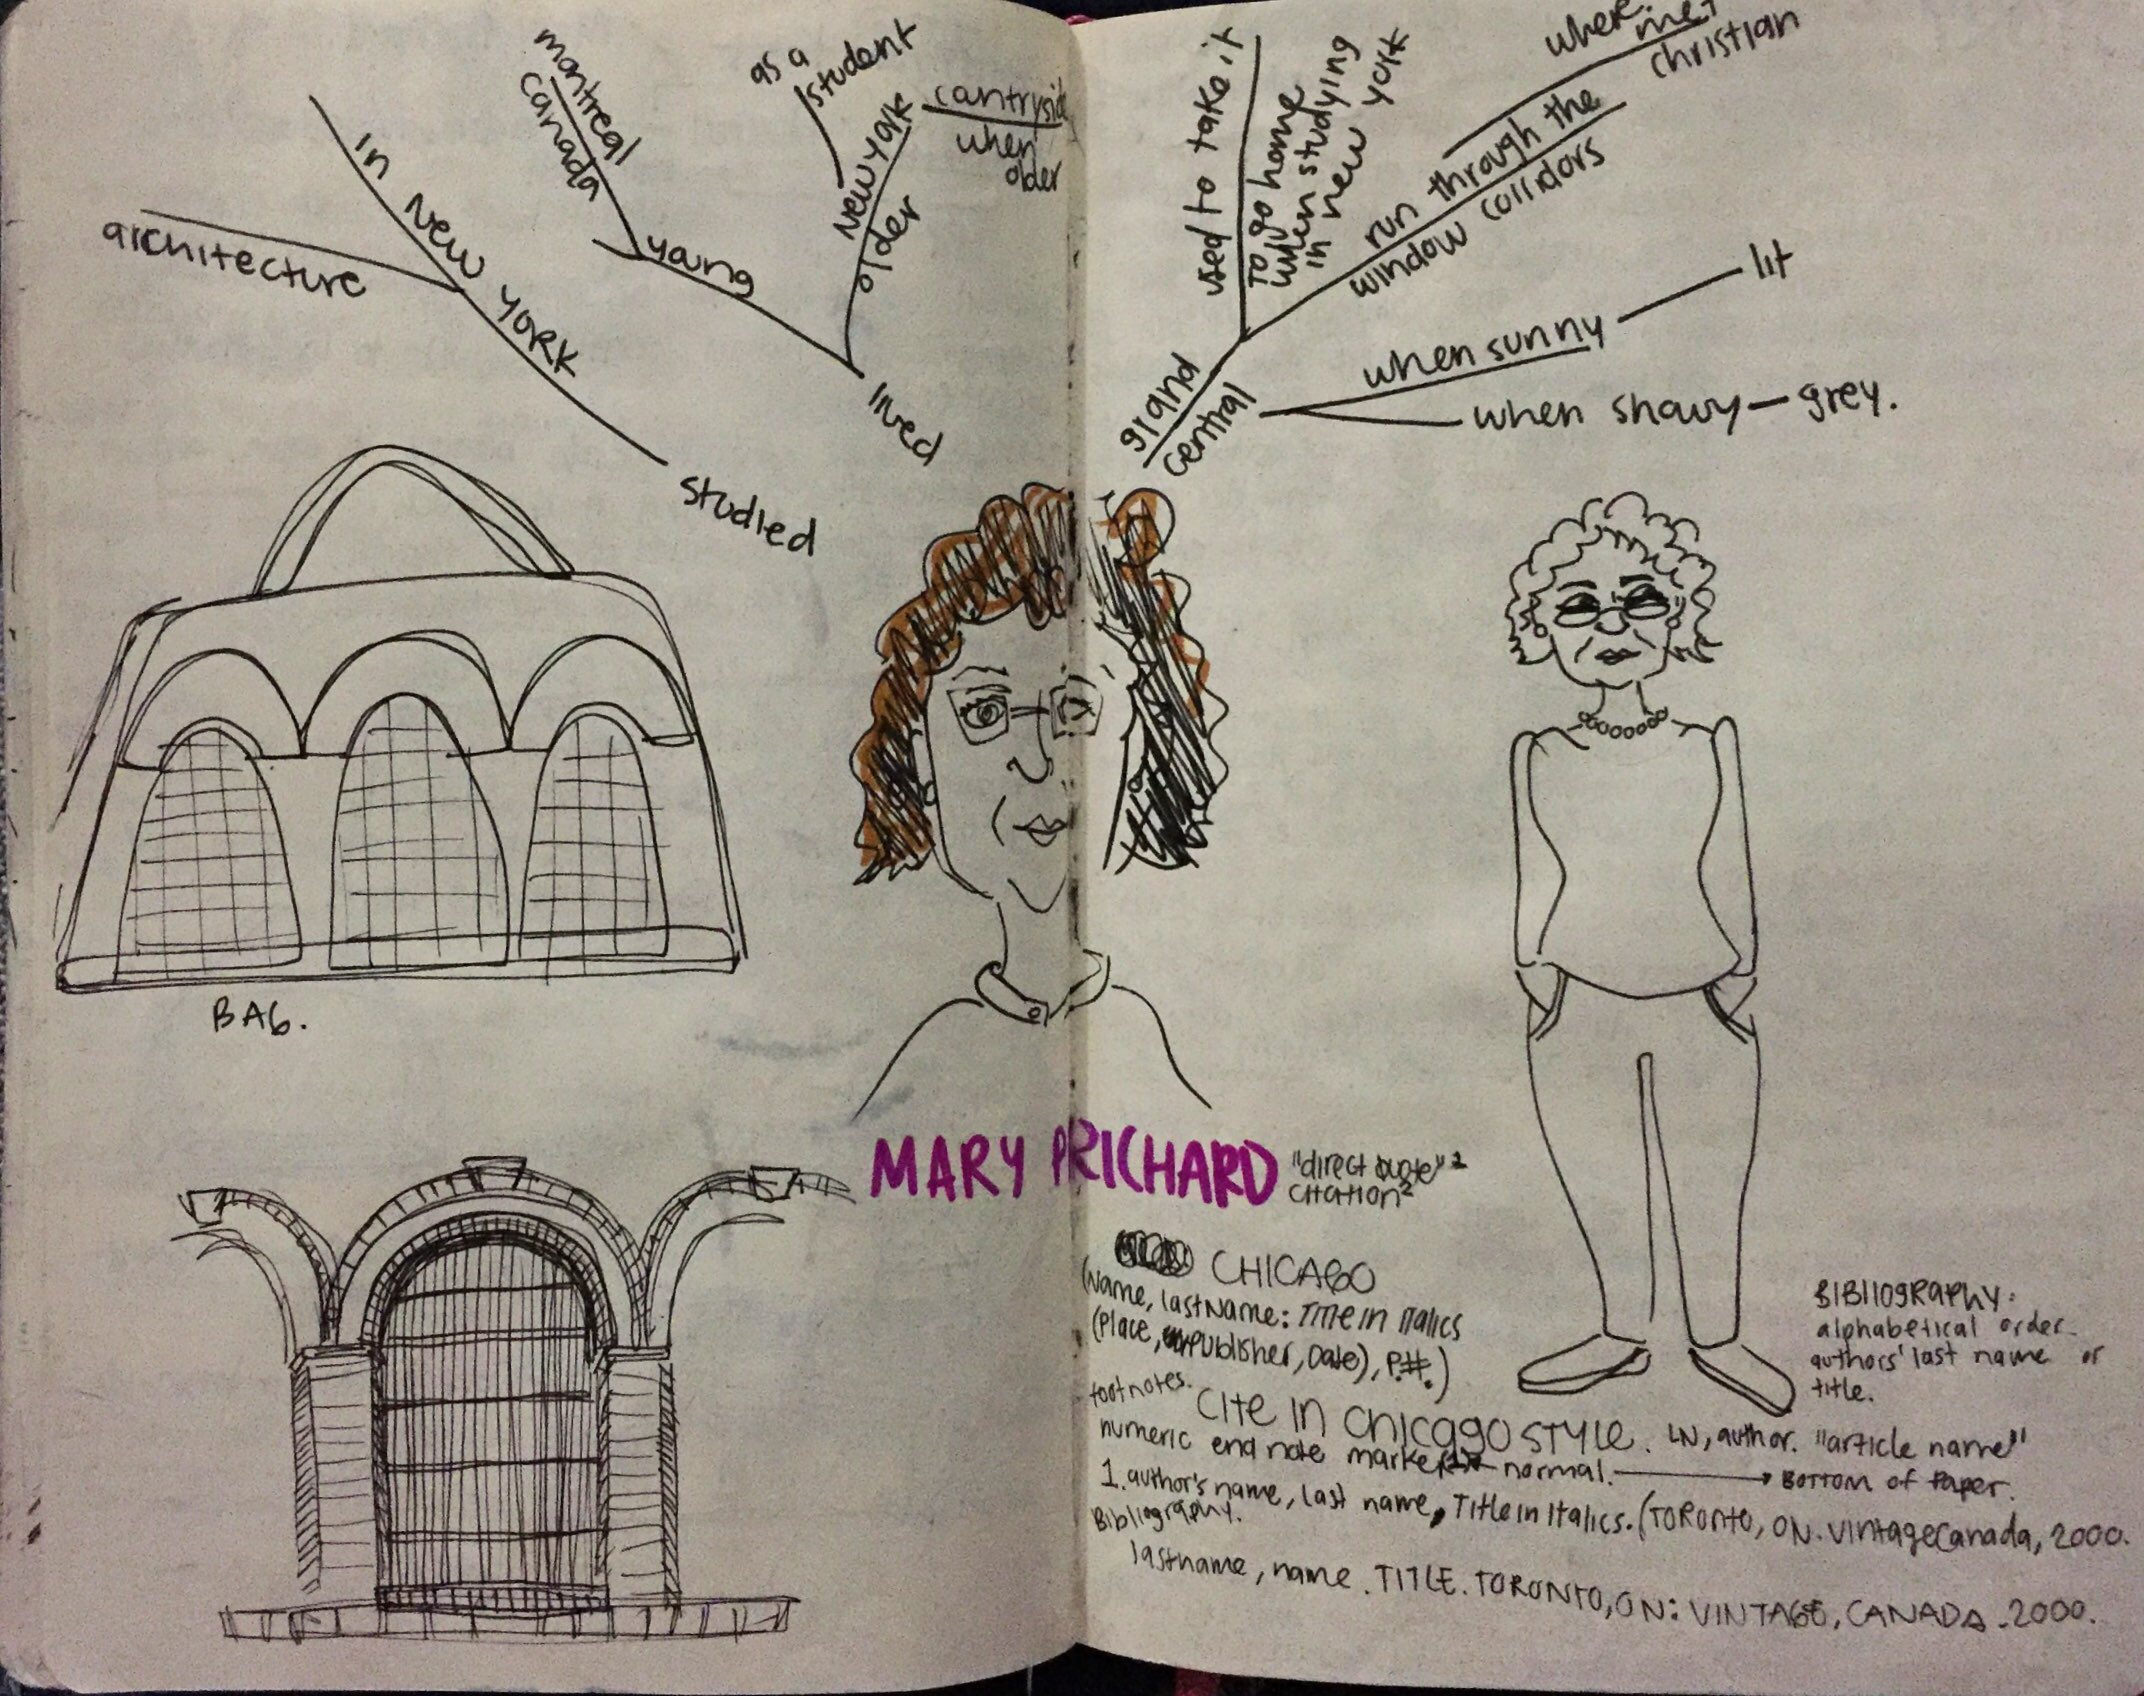 architecture
in New York
studied
montreal
canada
young
as a
student
New York
older
cantryside
when
older
lived
used to take it
to go home
when studying
in new york
where
met
christian
run through the
window corridors
grand
central
when sunny — lit
when snowy — grey.
BAG.
MARY PRICHARD
"direct quote"1
citation2
CHICAGO
(Name, last Name: Title in Italics
(Place, Publisher, Date), P.#.)
footnotes.
Cite in Chicago STYLE.
numeric end note marker
normal.
LN, author. "article name"
Bottom of Paper.
1. author's name, last name, Title in Italics. (TORONTO, ON. Vintage Canada, 2000.
Bibliography.
lastname, name. TITLE. TORONTO, ON: VINTAGE, CANADA. 2000.
BIBLIOGRAPHY:
alphabetical order.
authors' last name or
title.